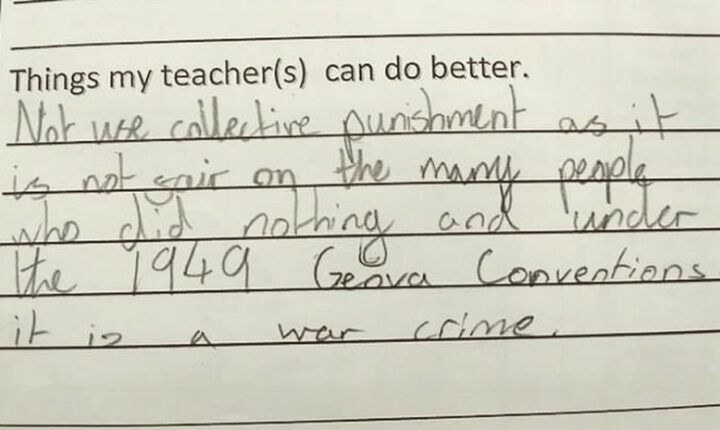 Things my teacher(s) can do better.
Not use collective punishment as it
is not fair on the many people
who did nothing and under
the 1949 Genova Conventions
it is a war crime.